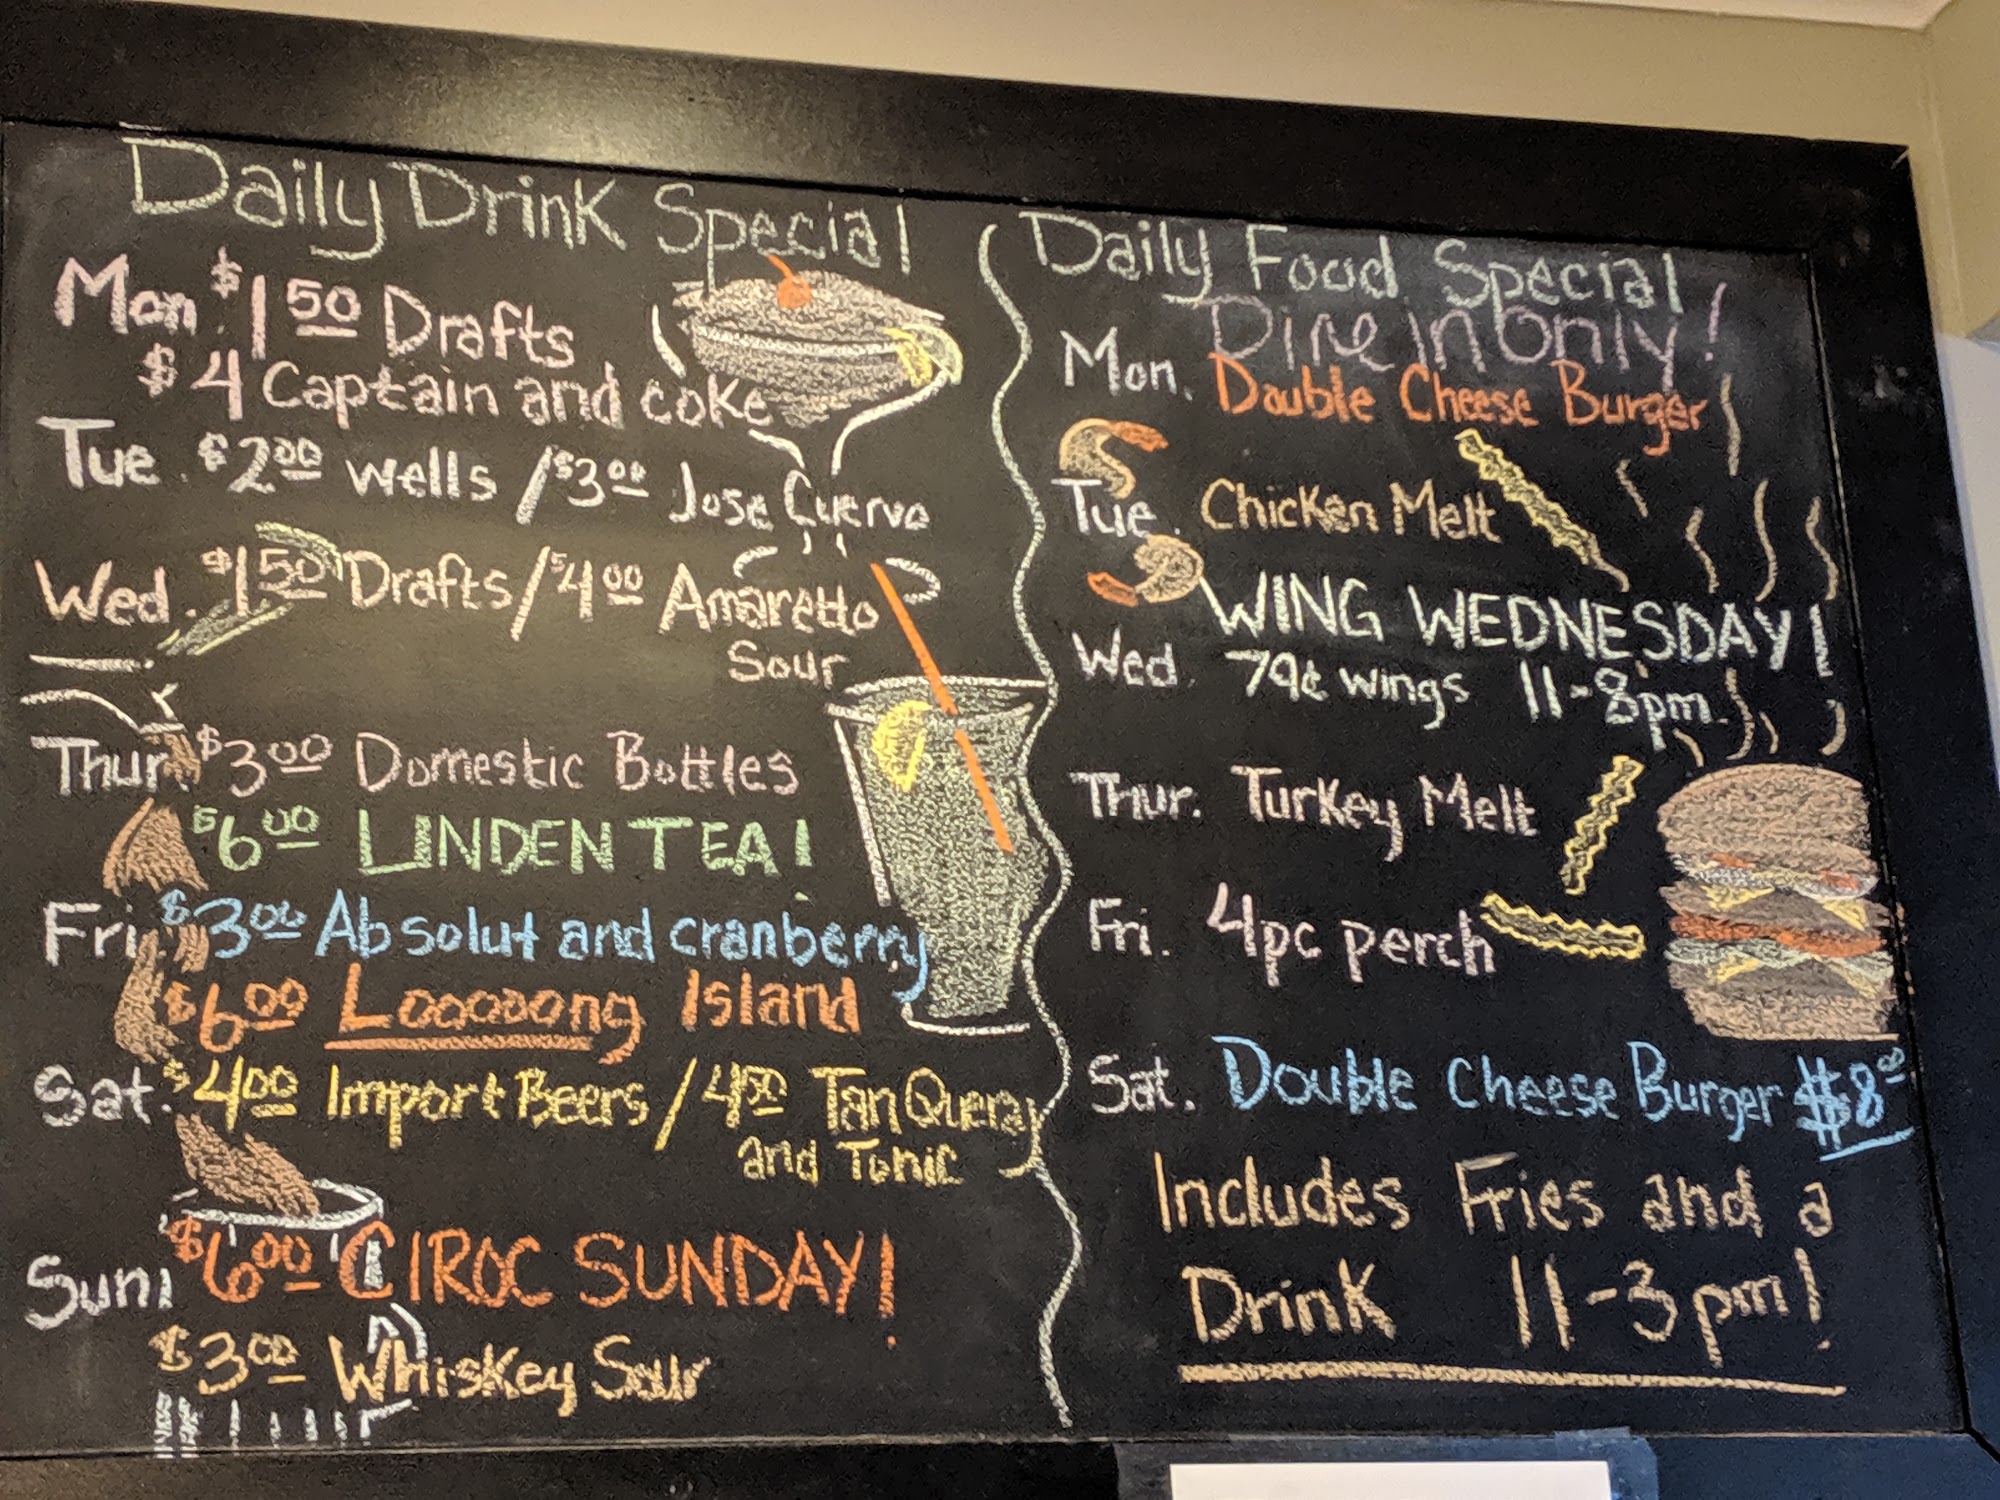 Daily Drink Special
Mon. $1 50 Drafts
$4 Captain and coke
Tue. $2 00 wells / $3 00 Jose Cuervo
Wed. $1 50 Drafts / $4 00 Amaretto
Sour
Thur. $3 00 Domestic Bottles
$6 00 LINDEN TEA!
Fri. $3 00 Absolut and cranberry
$6 00 Looooong Island
Sat. $4 00 Import Beers / 4 50 TanQueray
and Tonic
Sun. $6 00 CIROC SUNDAY!
$3 00 Whiskey Sour
Daily Food Special
Dine in only!
Mon. Double Cheese Burger
Tue. Chicken Melt
WING WEDNESDAY!
Wed. 79¢ wings 11-8pm.
Thur. Turkey Melt
Fri. 4pc perch
Sat. Double Cheese Burger $8 00
Includes Fries and a
Drink 11-3pm!